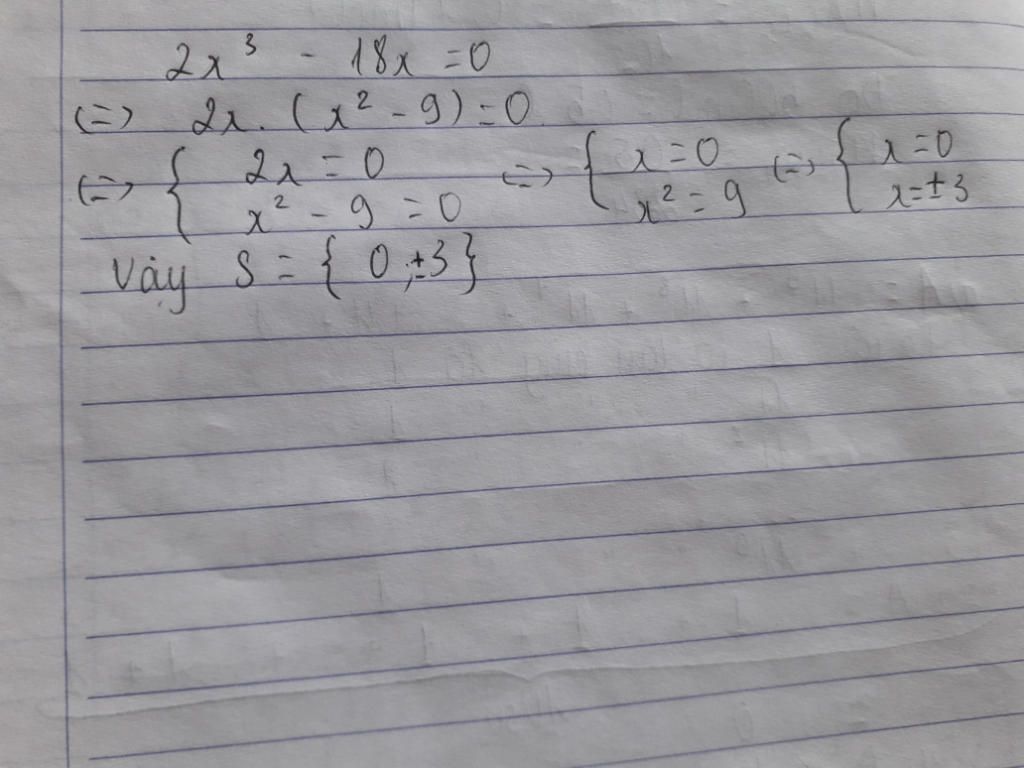 2x³ - 18x = 0
(=) 2x. (x² - 9) = 0
(=) { 2x = 0 (=) { x = 0 (=) { x = 0
x² - 9 = 0 x² = 9 x = ± 3
Vậy S = { 0 ; ±3 }